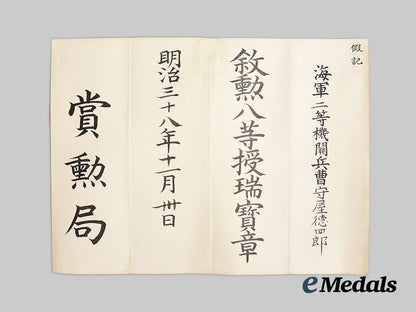 假記
海軍二等機關兵曹守屋德四郎
敘勲八等授瑞寶章
明治三十八年十一月卅日
賞勲局
eMedals